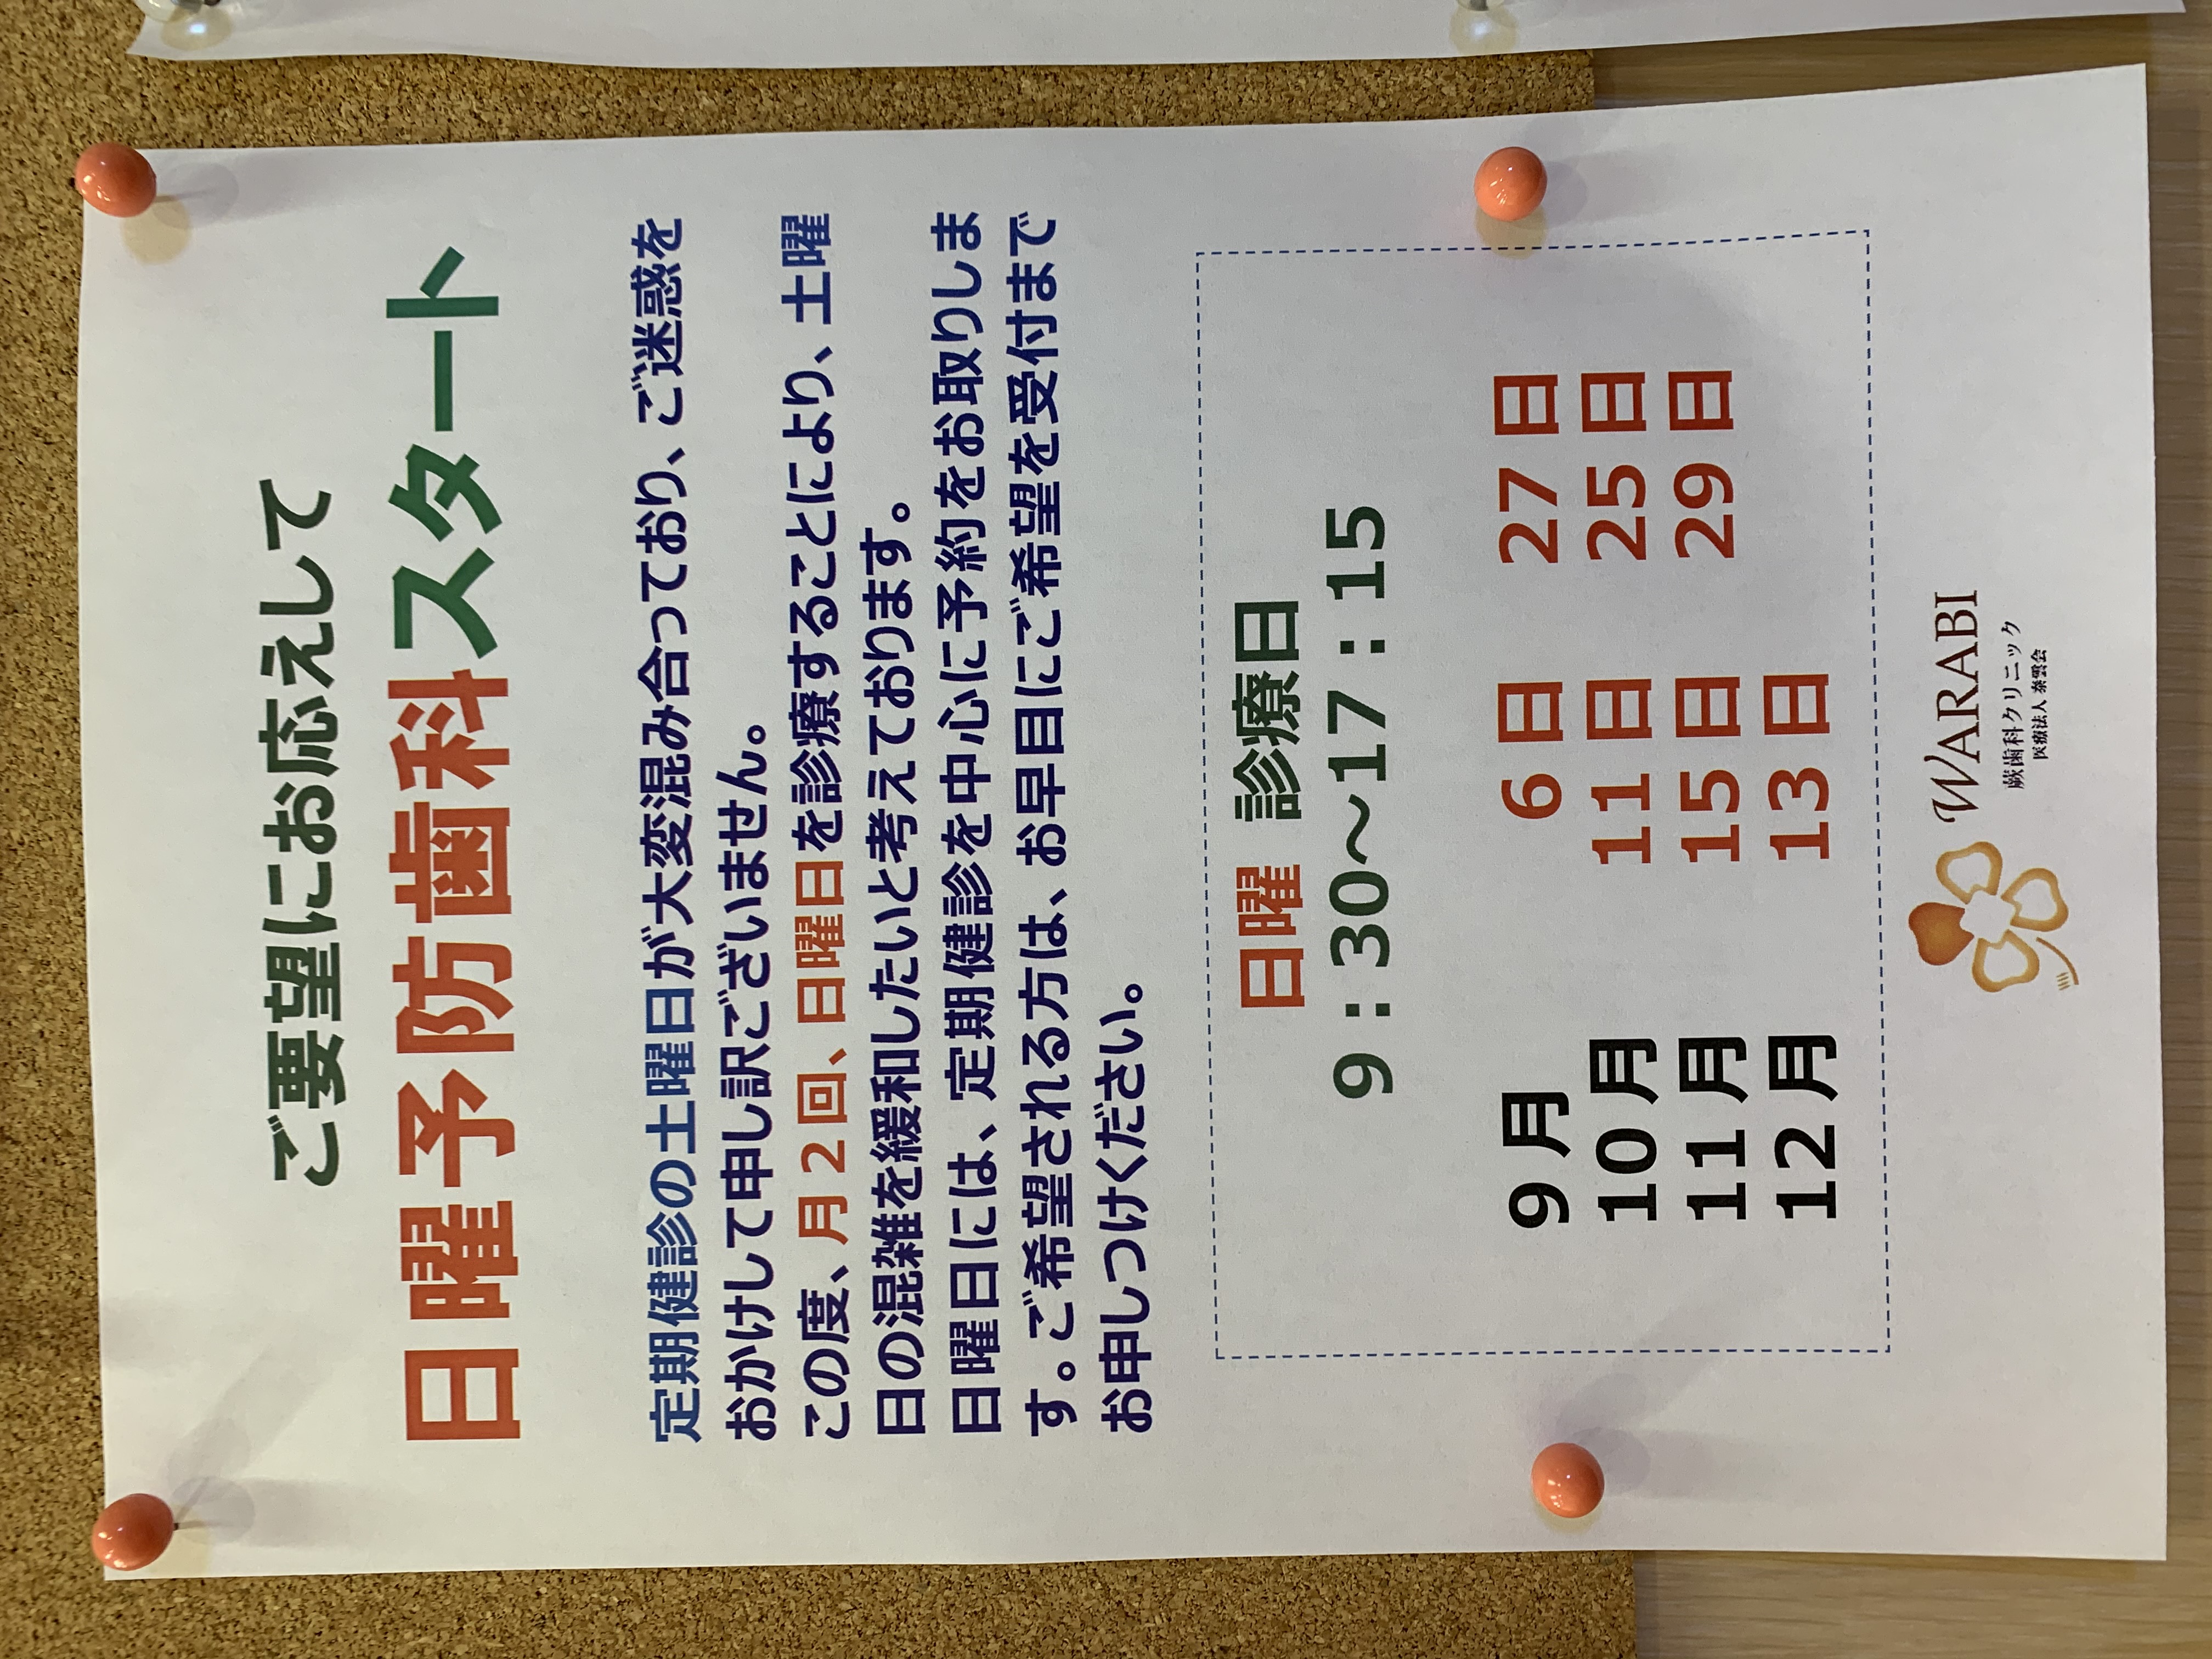 ご要望にお応えして
日曜予防歯科スタート
定期健診の土曜日が大変混み合っており、ご迷惑を
おかけして申し訳ございません。
この度、月２回、日曜日を診療することにより、土曜
日の混雑を緩和したいと考えております。
日曜日には、定期健診を中心に予約をお取りしま
す。ご希望される方は、お早目にご希望を受付まで
お申しつけください。
日曜 診療日
9：30～17：15
9月 6日 27日
10月 11日 25日
11月 15日 29日
12月 13日
WARABI
蕨歯科クリニック
医療法人 泰雲会